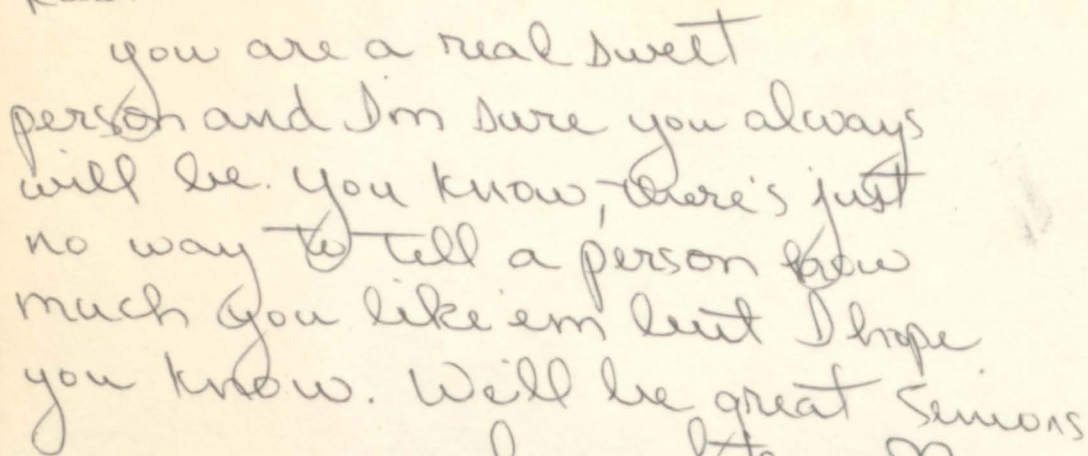 you are a real sweet
person and I'm sure you always
will be. You know, there's just
no way to tell a person how
much you like 'em but I hope
you know. We'll be great seniors